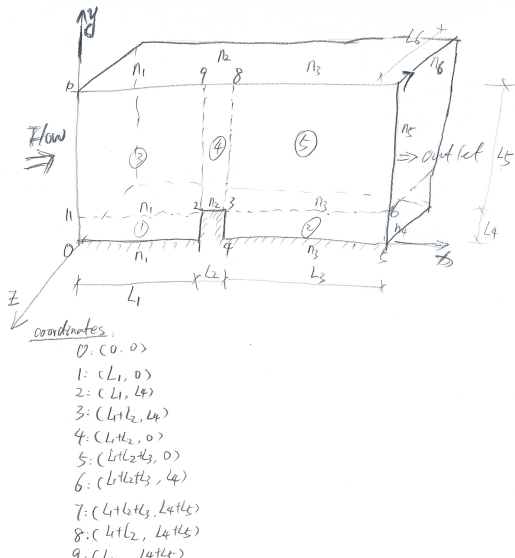 y
L6
n2
n1
9
8
n3
n6
n5
Flow
③
④
⑤
outlet
L5
11
n1
2
n2
3
n3
6
①
②
n4
L4
0
n1
4
n3
5
Z
L1
L2
L3
coordinates:
0: (0.0)
1: (L1, 0)
2: (L1, L4)
3: (L1+L2, L4)
4: (L1+L2, 0)
5: (L1+L2+L3, 0)
6: (L1+L2+L3, L4)
7: (L1+L2+L3, L4+L5)
8: (L1+L2, L4+L5)
9: (L1, L4+L5)